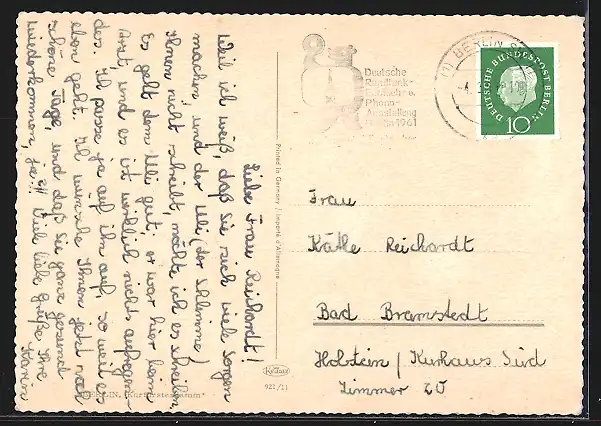 Liebe Frau Reichardt!
Weil ich weiß, daß Sie sich viele Sorgen
machen, und der Uli (der Schlimme)
Ihnen nicht schreibt, möchte ich es schreiben.
Es geht dem Uli gut, er war hier beim
Arzt und es ist wirklich nichts aufregen-
des. Ich passe ja auf ihn auf, so weit es
eben geht. Ich wünsche Ihnen jetzt noch
schöne Tage, und daß Sie ganz gesund
wiederkommen, ja?! Viele liebe Grüße Ihre
Karin
BERLIN, „Kurfürstendamm"
Printed in Germany / Importé d'Allemagne
Krüger
921/11
Deutsche
Rundfunk-
Phono-
Ausstellung
Berlin 1961
(1) BERLIN
DEUTSCHE BUNDESPOST BERLIN
10
Frau
Käthe Reichardt
Bad Bramstedt
Holstein / Kurhaus Süd
Zimmer 20